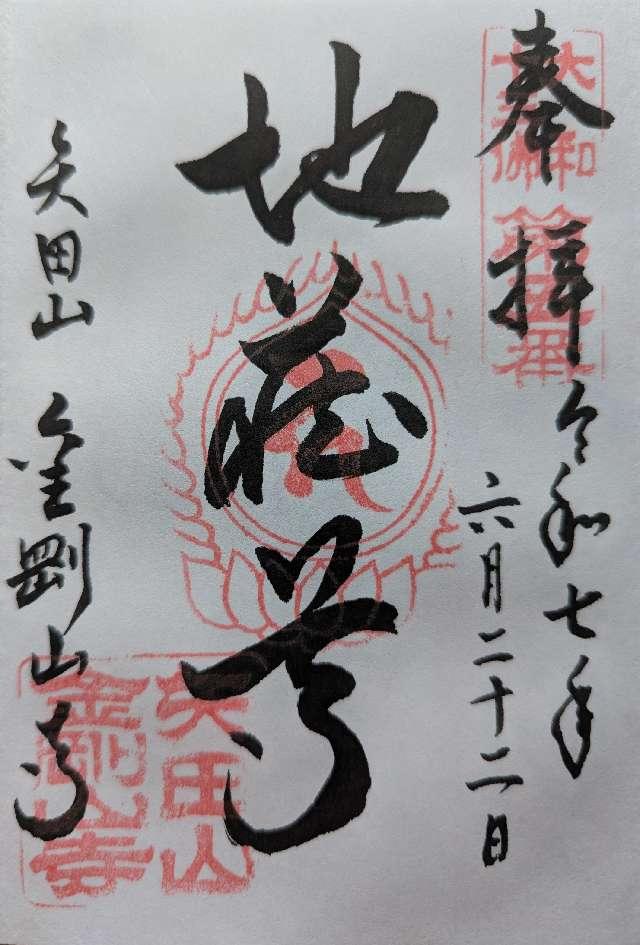 奉拝
令和七年
六月二十二日
地蔵尊
矢田山
金剛山寺
大和
十三佛
第五番
矢田山
金剛山寺